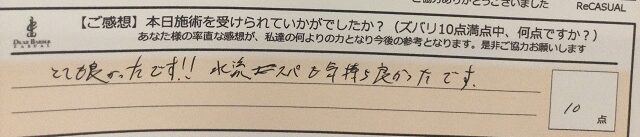 ご協力ありがとうございました ReCASUAL
DEAR BARBER
CASUAL
【ご感想】本日施術を受けられていかがでしたか？（ズバリ10点満点中、何点ですか？）
あなた様の率直な感想が、私達の何よりの力となり今後の参考となります。是非ご協力お願いします
とても良かったです!! 水流スパも気持ち良かったです。
10
点